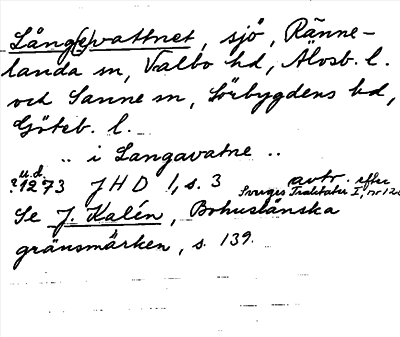 Lång(e)vattnet, sjö, Ränne-
landa sn, Valbo hd, Älvsb. l.
och Sanne sn, Sörbygdens hd,
Göteb. l.
.. i Langavatne ..
u.d.
?1273 JHD 1, s. 3 avtr. efter
Sveriges Traktater I, nr 120
Se J. Kalén, Bohuslänska
gränsmärken, s. 139.